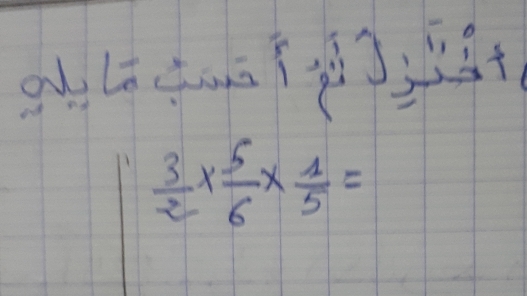 أَخْتَزِلُ ثُمَّ أَحْسُبُ مَا يَلِي
3/2 × 5/6 × 1/5 =